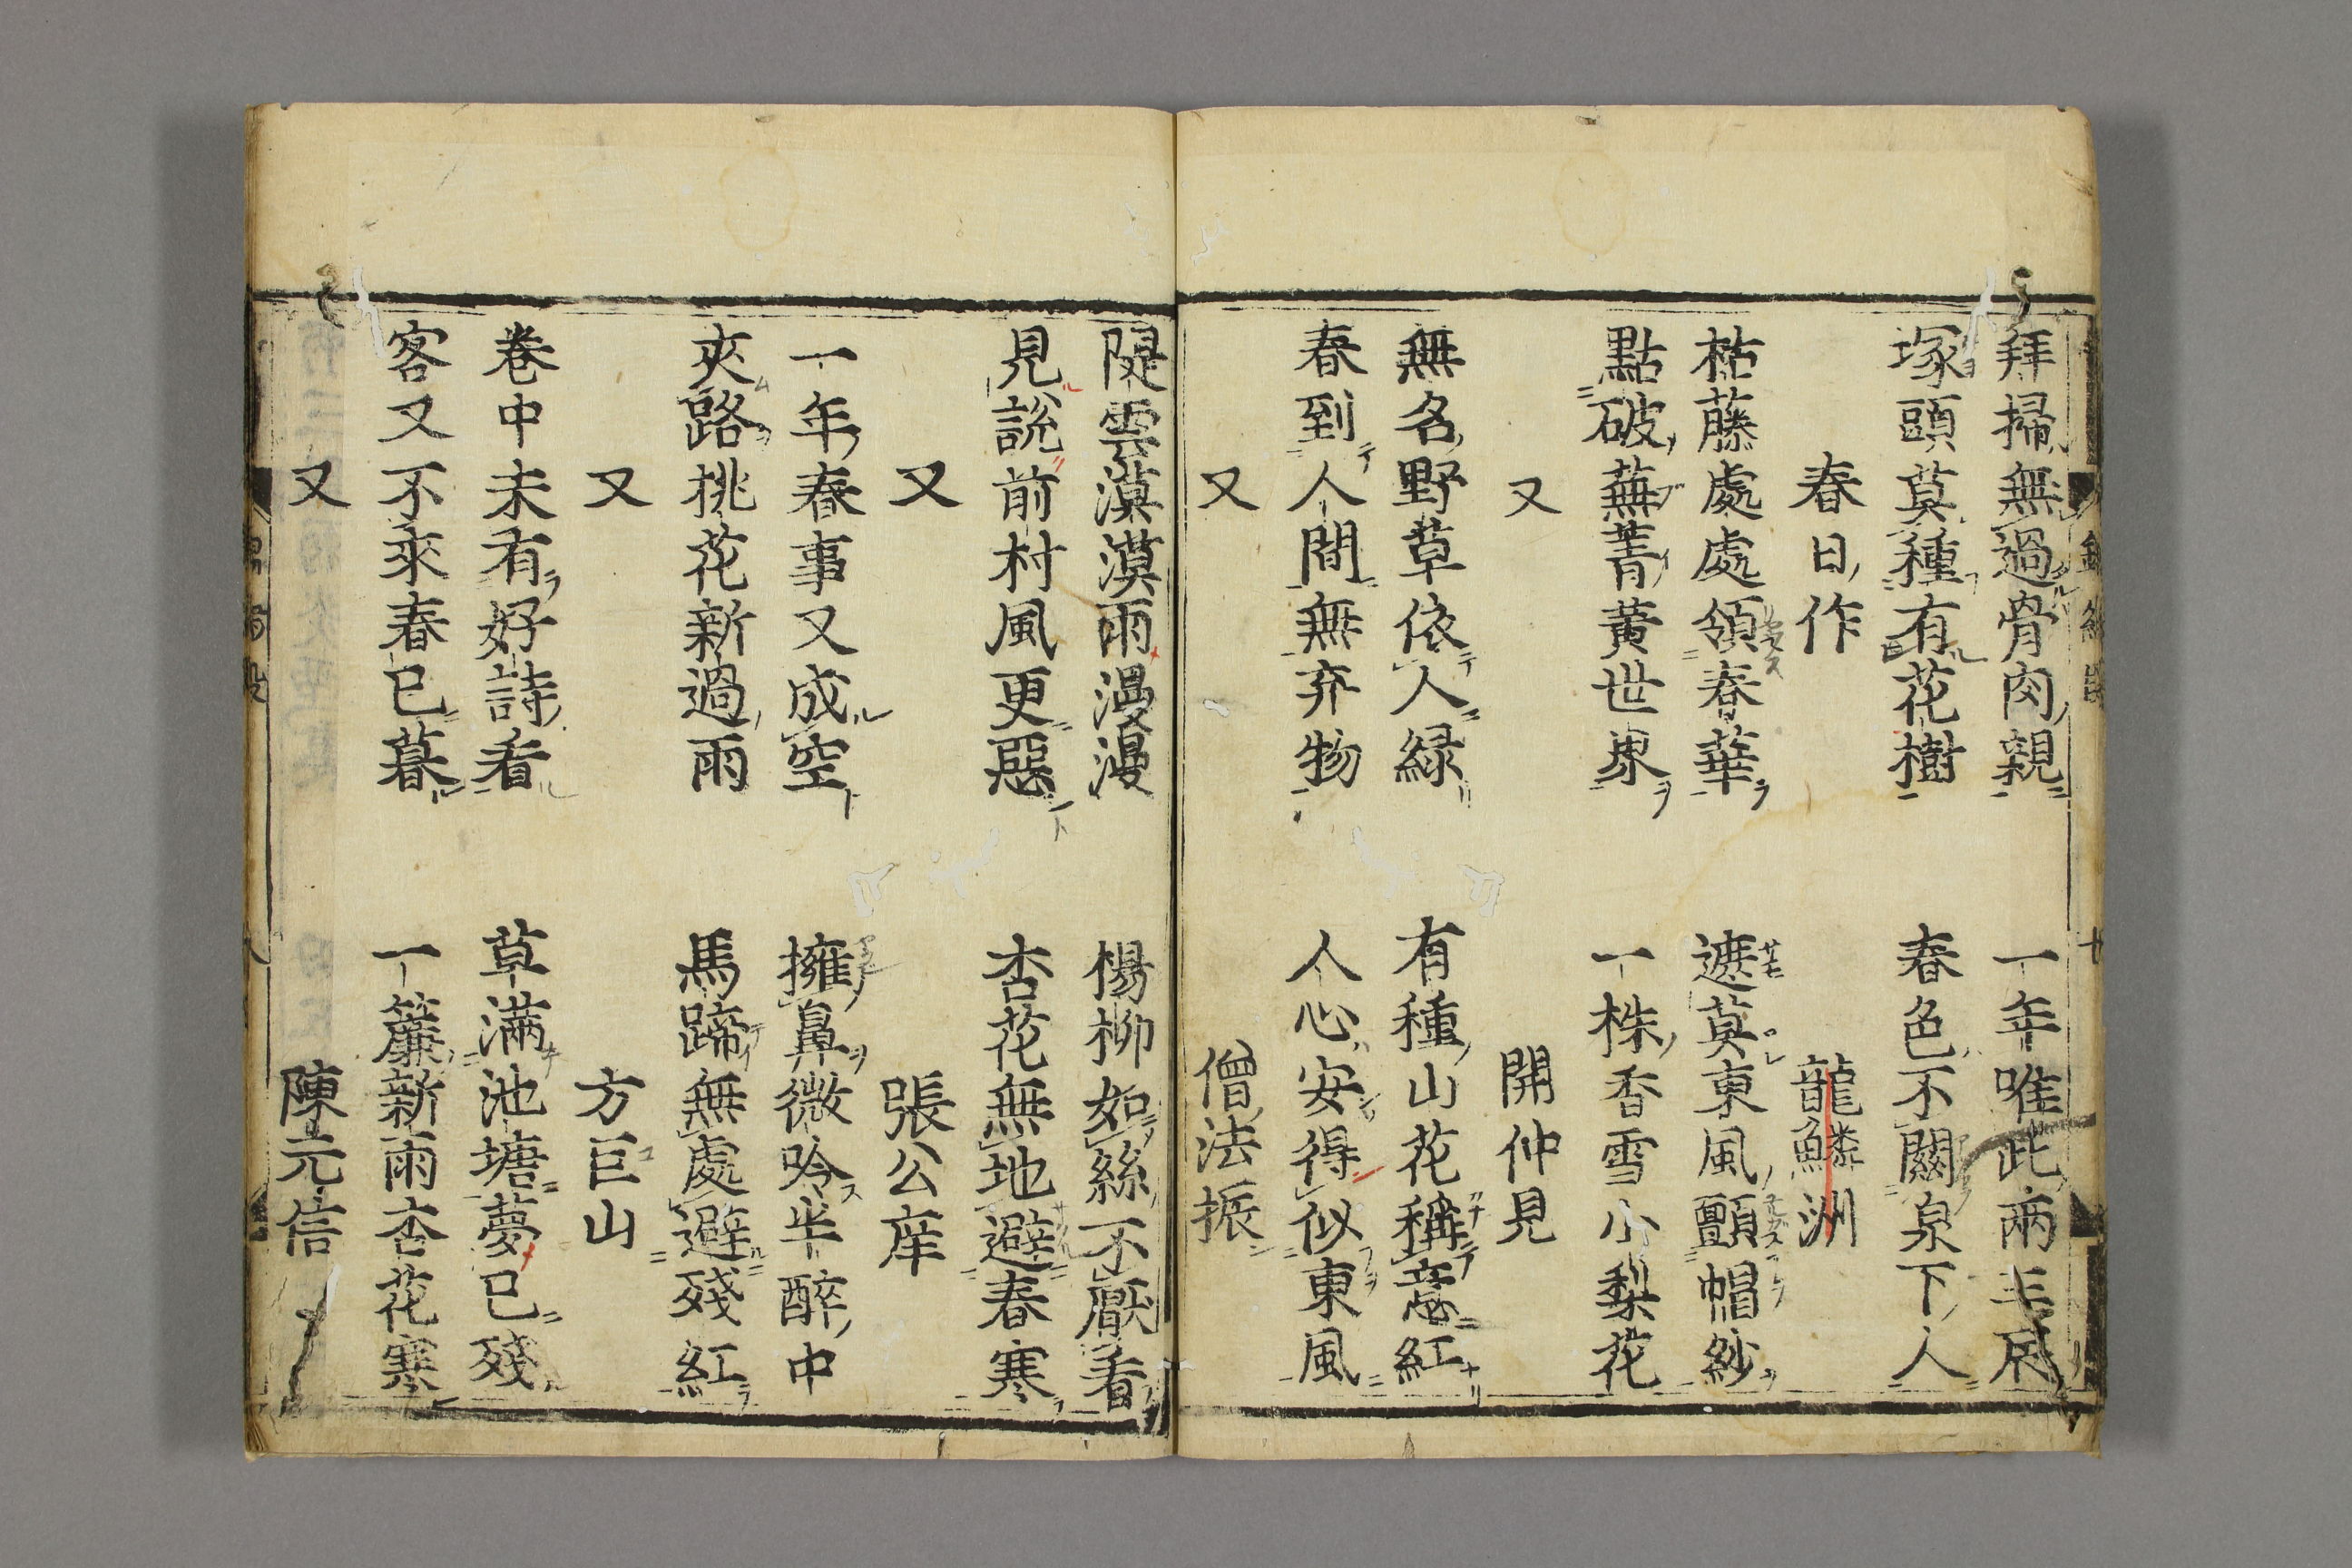 拜掃無過骨肉親　一年唯此兩三辰
塚頭莫種有花樹　春色不關泉下人
春日作　龍鱗洲
枯藤處處領春華　遮莫東風顫帽紗
點破蕪菁黄世界　一株香雪小梨花
又　開仲見
無名野草依人緑　有種山花稱意紅
春到人間無弃物　人心安得似東風
又　僧法振
隄雲漠漠雨漫漫　楊柳如絲不厭看
見說前村風更惡　杏花無地避春寒
又　張公庠
一年春事又成空　擁鼻微吟半醉中
夾路桃花新過雨　馬蹄無處避殘紅
又　方巨山
巻中未有好詩看　草滿池塘夢已殘
客又不來春已暮　一簾新雨杏花寒
又　陳元信